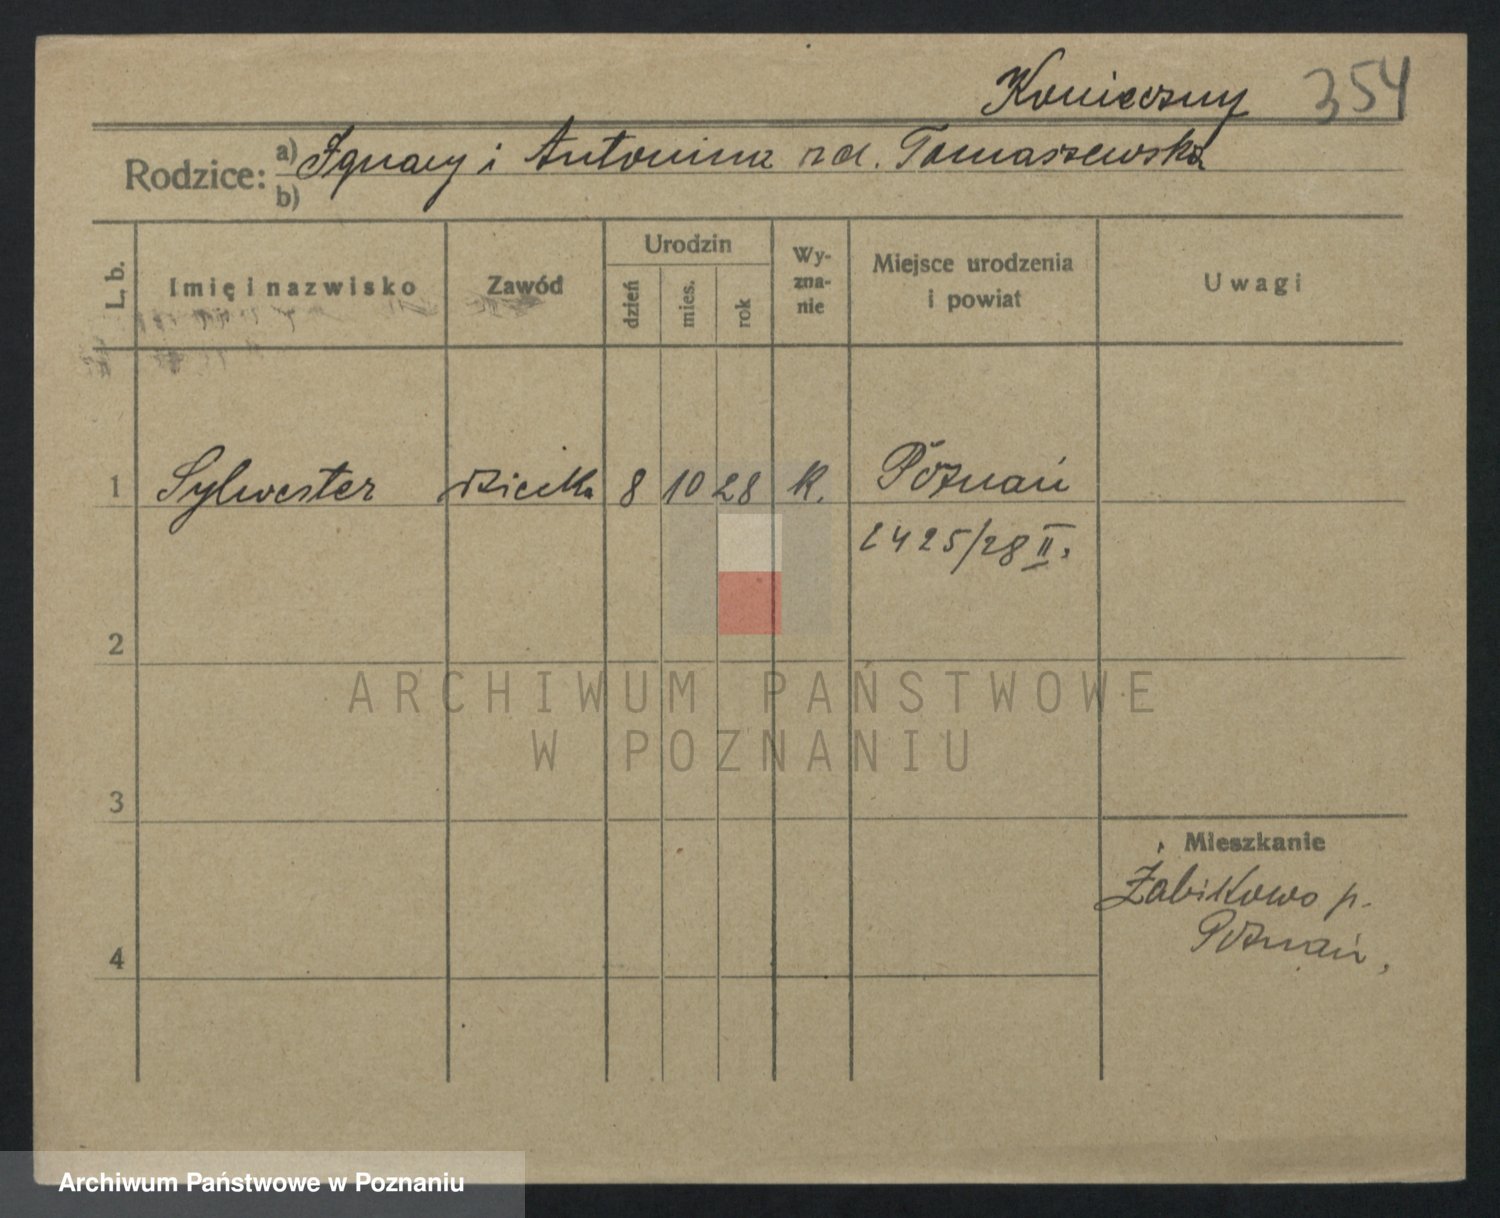 Konieczny 354
Rodzice: a) Ignacy i Antonina zd. Tomaszewska
b)
L. b.
Imię i nazwisko
Zawód
Urodzin
dzień
mies.
rok
Wy-
zna-
nie
Miejsce urodzenia
i powiat
Uwagi
1 Sylwester dziecko 8 10 28 K. Poznań
2425/28 II.
2
3
4
Mieszkanie
Żabikowo p.
Poznań.
ARCHIWUM PAŃSTWOWE
W POZNANIU
Archiwum Państwowe w Poznaniu